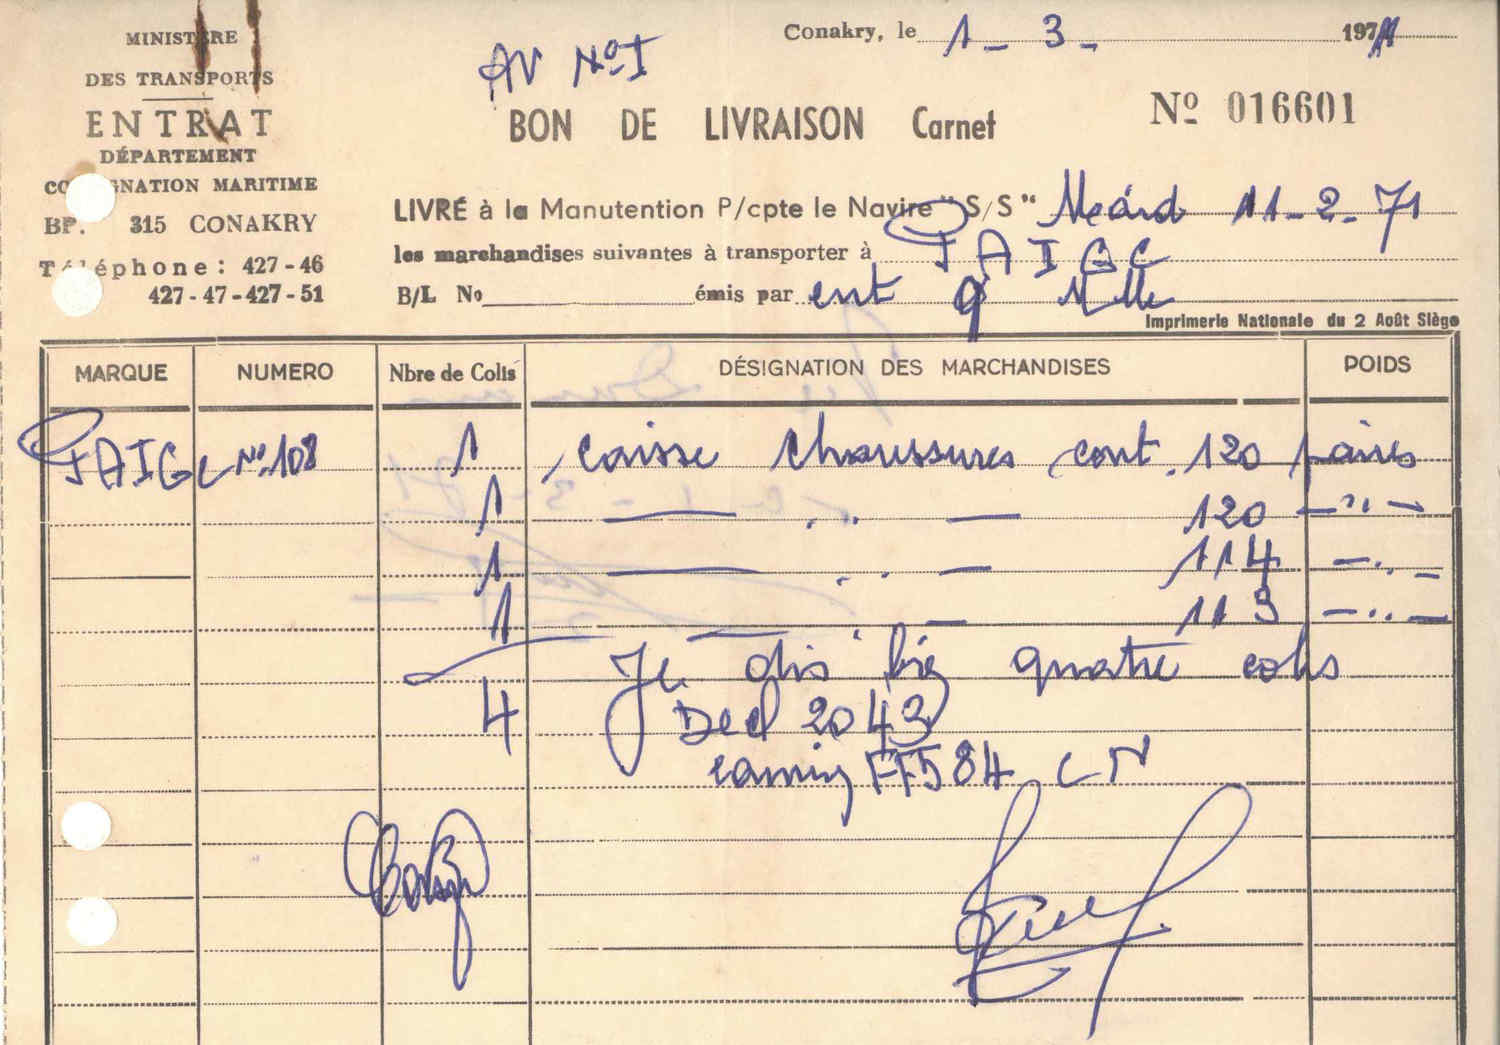 MINISTÈRE
DES TRANSPORTS
ENTRAT
DÉPARTEMENT
CO GNATION MARITIME
BP. 315 CONAKRY
Téléphone : 427-46
427-47-427-51
Conakry, le 1-3-1971
AV No I
BON DE LIVRAISON Carnet
No 016601
LIVRÉ à la Manutention P/cpte le Navire "S/S" 11-2-71
les marchandises suivantes à transporter à PAIGC
B/L No émis par ent 9
Imprimerie Nationale du 2 Août Siège
MARQUE NUMERO Nbre de Colis DÉSIGNATION DES MARCHANDISES POIDS
PAIGC No 108 1 caisse chaussures cont. 120 paires
1 — " — 120 — " —
1 — " — 114 — " —
1 — " — 113 — " —
Je dis quatre colis
4 Decl 2043
camion FF584 CN